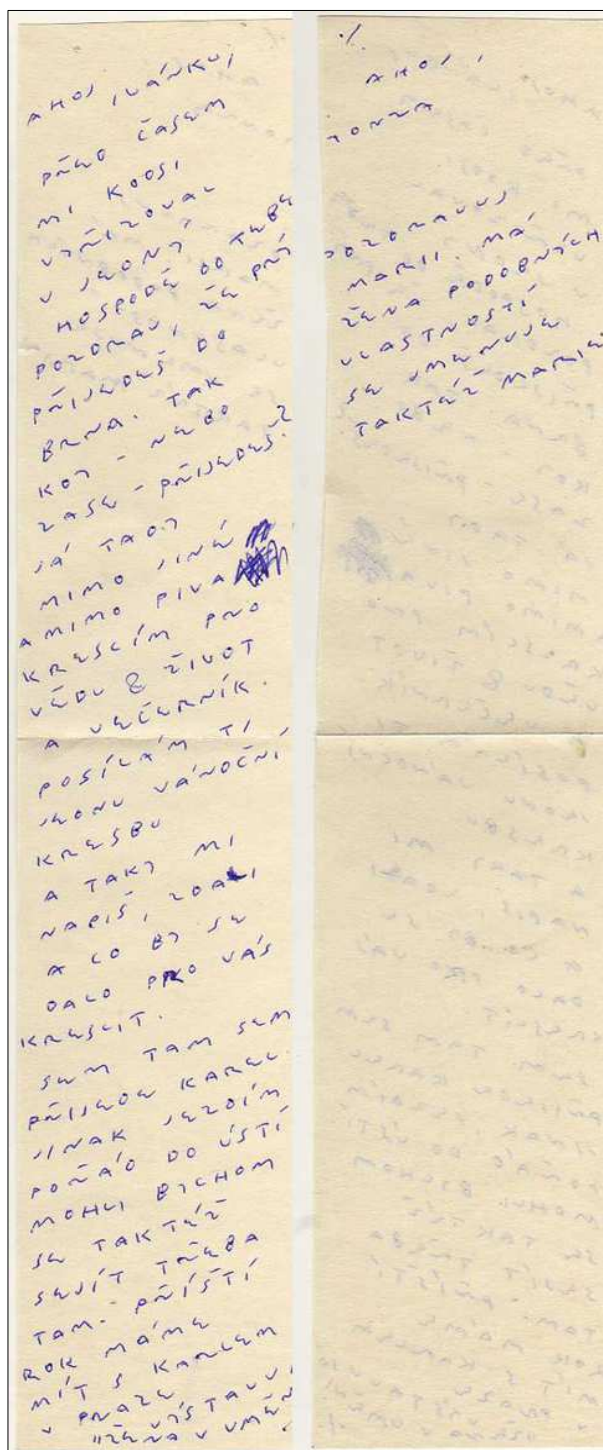 AHOJ IVÁNKU,
PŘED ČASEM
MI KDOSI
VYŘIZOVAL
V JEDNÉ
HOSPODĚ OD TEBE
POZDRAV, ŽE PŘI
PŘIJEDEŠ DO
BRNA. TAK
KDY - NEBO
ZASE - PŘIJEDEŠ?
JÁ TADY
MIMO JINÉ
A MIMO PIVA
KRESLÍM PRO
VĚDU & ŽIVOT
A VEČERNÍK.
POSÍLÁM TI
JEDNU VÁNOČNÍ
KRESBU
A TAKY MI
NAPIŠ, ZDALI
A CO BY SE
DALO PRO VÁS
KRESLIT.
SEM TAM SEM
PŘIJEDE KAREL
JINAK JEZDÍM
POŘÁD DO ÚSTÍ
MOHLI BYCHOM
SE TAKTÉŽ
SEJÍT TŘEBA
TAM. PŘÍŠTÍ
ROK MÁME
MÍT S KARLEM
V PRAZE
VÝSTAVU,
"ŽENA V UMĚNÍ
·/.
AHOJ,
TONDA
POZDRAVUJ
MARII. MÁ
ŽENA PODOBNÝCH
VLASTNOSTÍ
SE JMENUJE
TAKTÉŽ MARIE